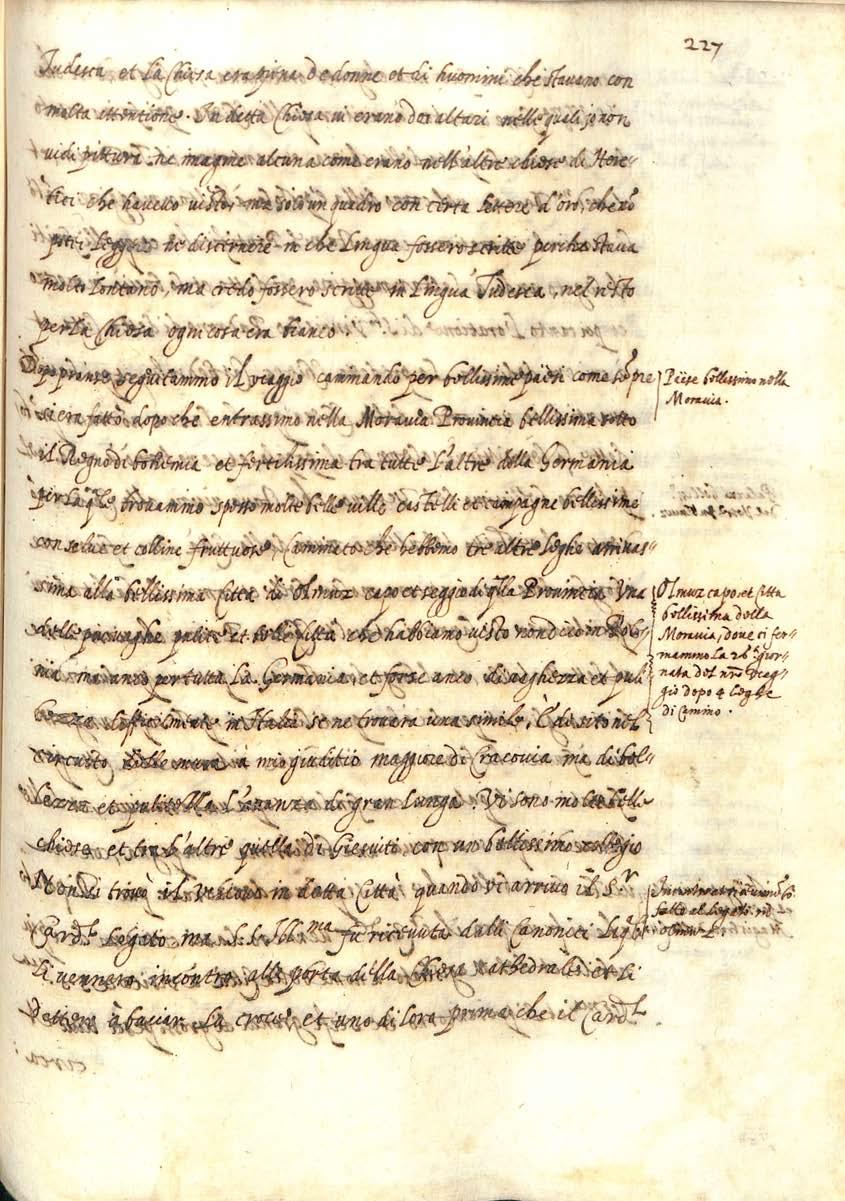 227
Tudesca, et la Chiesa era piena de donne et di huomini che stavano con
molta attentione. In detta Chiesa vi erano doi altari nelle quali io non
vidi pittura ne imagine alcuna come erano nell'altre chiese di Here-
tici che havevo visto, ma solo un quadro con certe lettere d'oro, che nõ
potei leggere ne discernere in che lingua fossero scritte perche stava
molto lontano, ma credo fossero scritte in lingua Tudesca, nel resto
per la Chiesa ogni cosa era bianco.
Dopo pranso seguitammo il viaggio caminando per bellissimi paesi come sẽpre
si era fatto dopo che entrassimo nella Moravia Provincia bellissima sotto
il Regno di bohemia et fertilissima tra tutte l'altre della Germania
per la q̃le trovammo spesso molte belle ville castelli et campagne bellissime
con selve et colline fruttuose, Caminato che hebbemo tre altre leghe arrivas-
simo alla bellissima Città di Olmuz capo et seggio di q̃lla Provincia Una
delle più vaghe pulite et belle Città che habbiamo visto non dico in Polo-
nia ma anco per tutta la Germania, et forse anco di vaghezza et puli
tezza difficilmente in Italia se ne trovarà una simile, È de sito nel
circuito delle mura à mio giuditio maggiore di Cracovia ma di bel-
lezza et pulitezza l'avanza di gran lunga. Vi sono molte belle
chiese et tra l'altre quella di Giesuiti con un bellissimo collegio
Non si trovò il vescovo in detta Città quando vi arrivò il S.r
Card.l Legato ma S. S. Ill.ma fu ricevuta dalli Canonici liq̃li
li vennero incontro alla porta della Chiesa cathedrale et li
dettero à baciar la croce et uno di loro prima che il Card.l
circa
Paese bellissimo nella
Moravia.
Olmuz capo et Città
bellissima della
Moravia, dove ci fer-
mammo la 26.a gior-
nata del nr̃o viag-
gio dopo 4 leghe
di Camino.
fatto al Legato